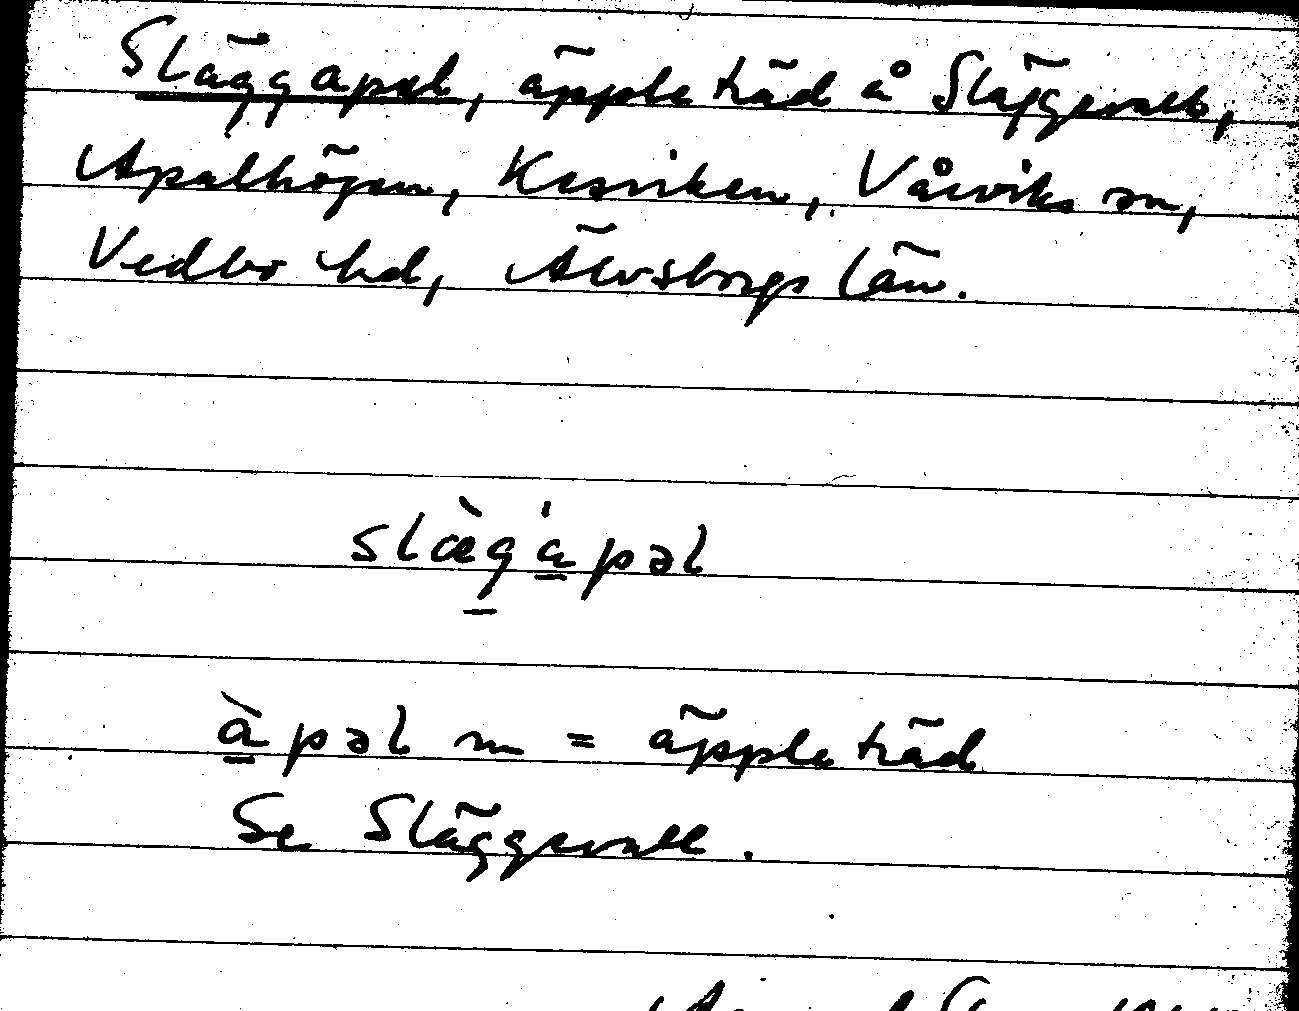 Släggapel, äppleträd å Släggevall,
Apalhögen, Kesviken, Vårviks sn,
Vedbo hd, Älvsborgs län.
slæ̀gápəl
àpəl m = äppleträd
Se Släggevall.